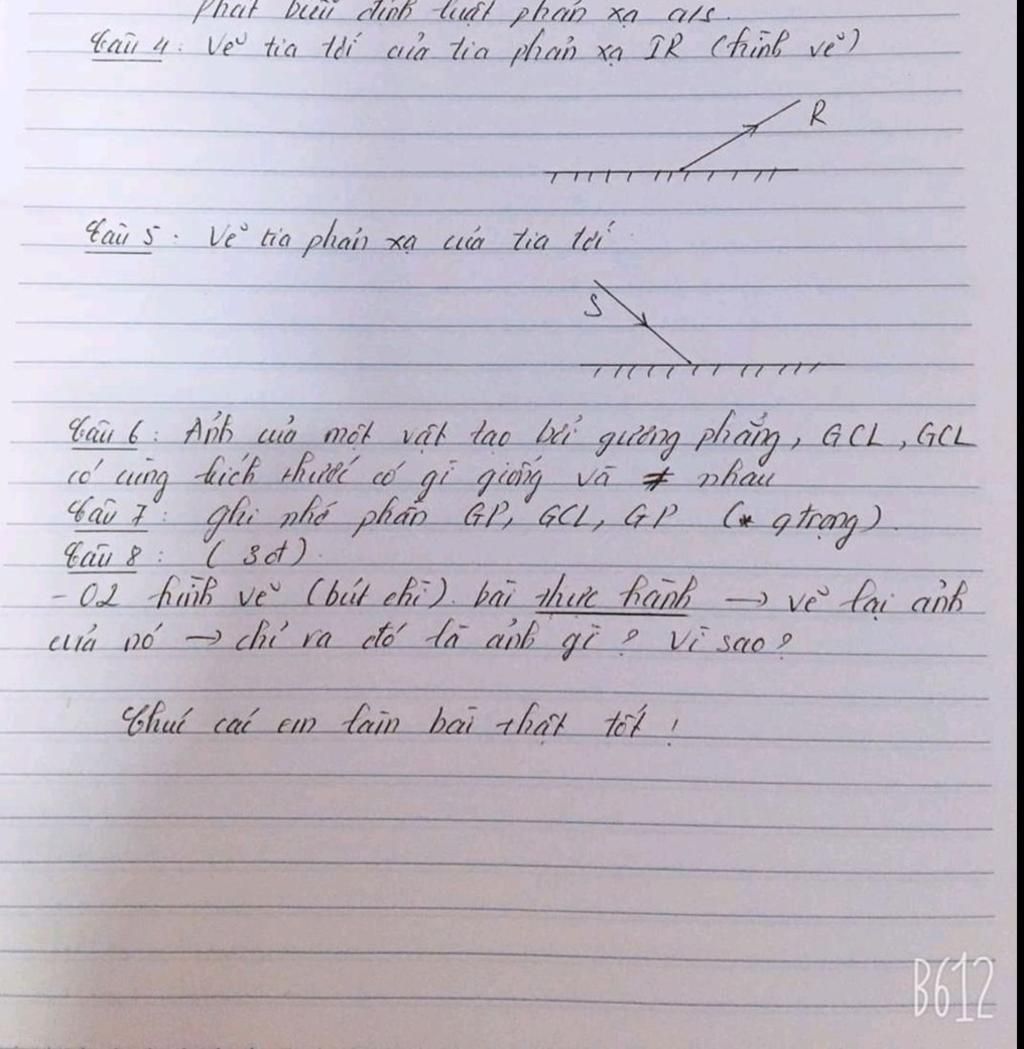 Phát biểu định luật phản xạ a/s.
Câu 4: Vẽ tia tới của tia phản xạ IR (hình vẽ)
R
Câu 5: Vẽ tia phản xạ của tia tới
S
Câu 6: Ảnh của một vật tạo bởi gương phẳng, GCL, GCL
có cùng kích thước có gì giống và ≠ nhau
Câu 7: ghi nhớ phần GP, GCL, GP (* qtrọng).
Câu 8: (3đ).
- 02 hình vẽ (bút chì). bài thực hành → vẽ lại ảnh
của nó → chỉ ra đó là ảnh gì? Vì sao?
Chúc các em làm bài thật tốt!
B612